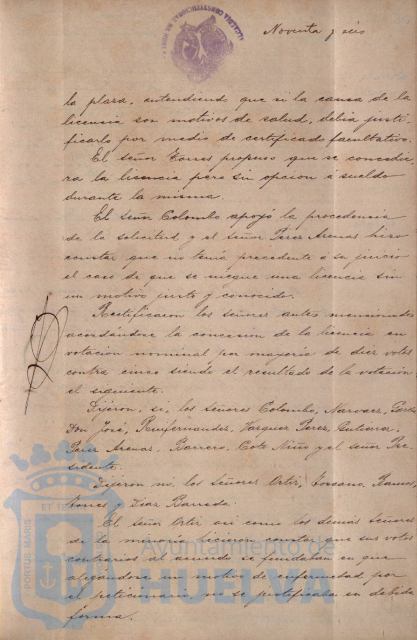 Noventa y seis
la plaza, entendiendo que si la causa de la
licencia son motivos de salud, debia justi-
ficarlo por medio de certificado facultativo.
El señor Torres propuso que se concedie-
ra la licencia pero sin opcion á sueldo
durante la misma.
El señor Colombo apoyó la procedencia
de la solicitud y el señor Perez Arenas hizo
constar que no tenia precedente á su juicio
el caso de que se niegue una licencia sin
un motivo justo y conocido.
Rectificaron los señores antes mencionados
acordándose la concesion de la licencia en
votacion nominal por mayoria de diez votos
contra cinco siendo el resultado de la votacion
el siguiente.
Dijeron, si, los señores Colombo, Narvaez,
Don José, Vazquez Perez, Gutierrez,
Perez Arenas, Barrero, Coto Niño y el señor Pre-
sidente.
Dijeron no, los señores Ortiz, Toscano, Ramos,
Torres y Diaz Barreda.
El señor Ortiz asi como los demás señores
de la minoria hicieron constar que sus votos
contrarios al acuerdo se fundaban en que
alegándose un motivo de enfermedad por
el peticionario no se justificaba en debida
forma.
PORTUS MARIS ET TE
Ayuntamiento de
HUELVA